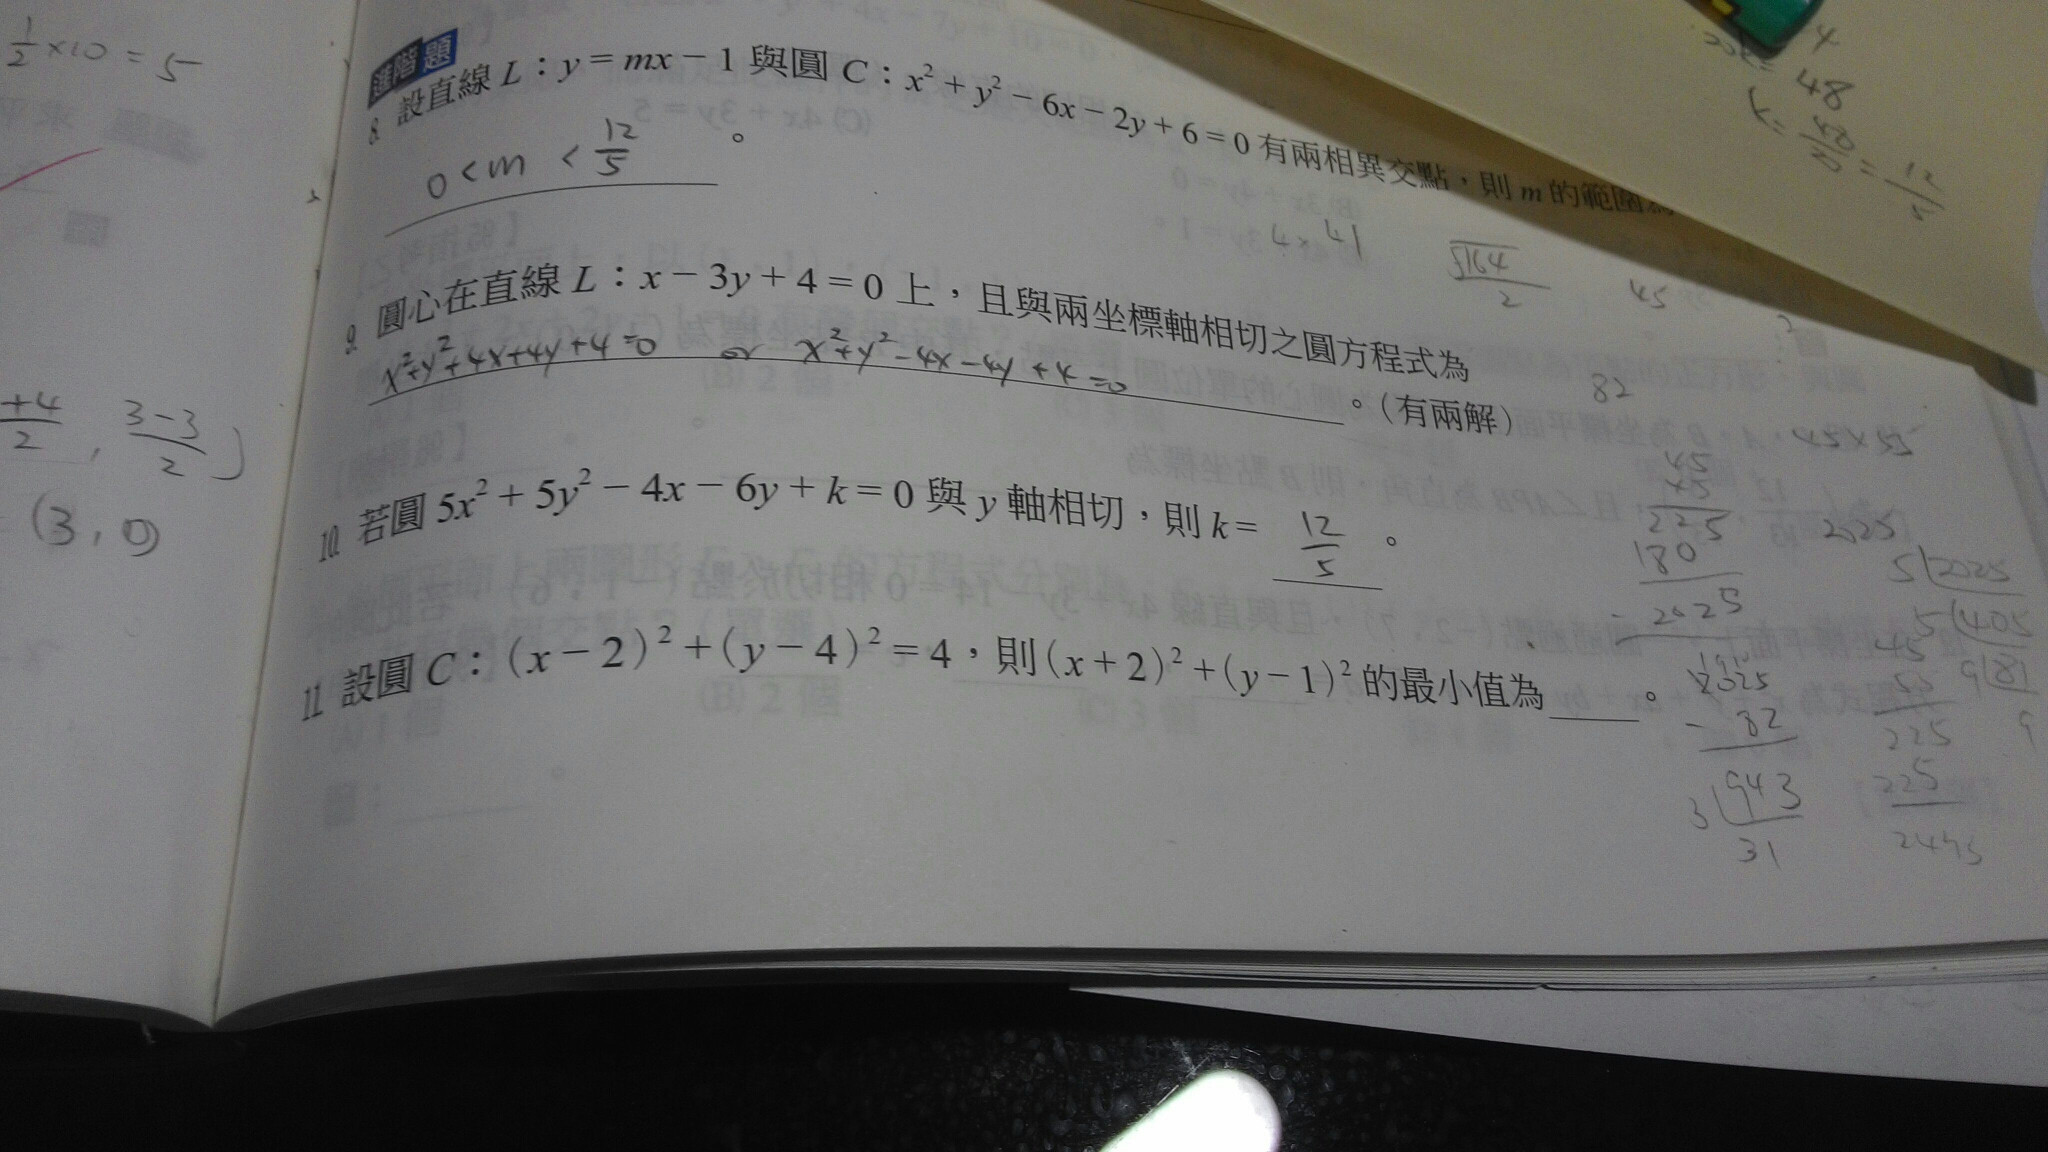 1/2×10 = 5
進階題
8. 設直線 L：y = mx − 1 與圓 C：x² + y² − 6x − 2y + 6 = 0 有兩相異交點，則 m 的範圍為
0 < m < 12/5 。
4×41
√164/2
45
9. 圓心在直線 L：x − 3y + 4 = 0 上，且與兩坐標軸相切之圓方程式為
x²+y²+4x+4y+4=0 or x²+y²−4x−4y+4=0 。（有兩解）
82
+4/2 , 3−3/2 )
(3, 0)
10. 若圓 5x² + 5y² − 4x − 6y + k = 0 與 y 軸相切，則 k = 12/5 。
11. 設圓 C：(x − 2)² + (y − 4)² = 4，則 (x + 2)² + (y − 1)² 的最小值為____。
4
48
k = 48/20 = 12/5
45×55
45
×45
225
180
2025
2025
5 2025
5 405
9 81
9
2025
− 82
3 943
31
45
55
225
225
2475